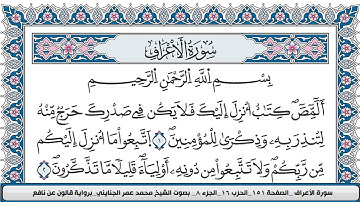 سُورَةُ الْأَعْرَافِ
بِسْمِ اللَّهِ الرَّحْمَٰنِ الرَّحِيمِ
أَلَٓمِّٓصَٓ كِتَٰبٌ أُنزِلَ إِلَيْكَ فَلَا يَكُن فِي صَدْرِكَ حَرَجٌ مِّنْهُ
لِتُنذِرَ بِهِۦ وَذِكْرَىٰ لِلْمُؤْمِنِينَ ١ اِتَّبِعُوا مَا أُنزِلَ إِلَيْكُم
مِّن رَّبِّكُمْ وَلَا تَتَّبِعُوا مِن دُونِهِۦ أَوْلِيَآءَ قَلِيلًا مَّا تَذَّكَّرُونَ ٢
سورة الأعراف _الصفحة ١٥١_ الحزب ١٦_ الجزء ٨_ بصوت الشيخ محمد عمر الجنايني_ برواية قالون عن نافع